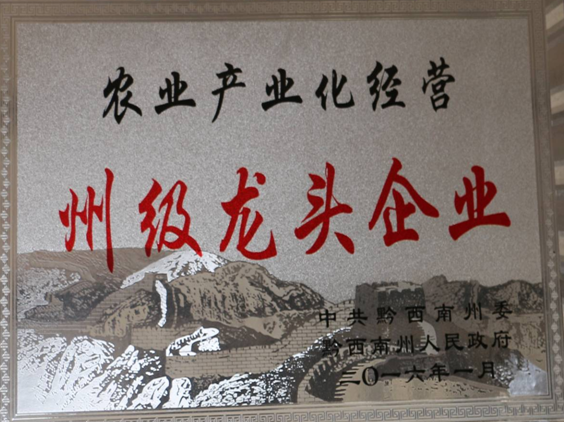 农业产业化经营
州级龙头企业
中共黔西南州委
黔西南州人民政府
二〇一六年一月